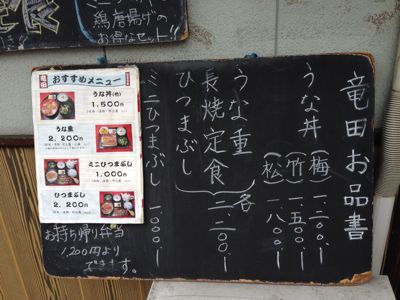 鶏唐揚げの
お得なセット!!
竜田お品書
うな丼
梅 一、二〇〇、ー
竹 一、五〇〇、ー
松 一、八〇〇、ー
うな重
長焼定食
ひつまぶし
各 二、二〇〇、ー
ミニひつまぶし 一、〇〇〇、ー
おすすめメニュー
うな丼(竹)
1,500円
うな重
2,200円
ミニひつまぶし
1,000円
ひつまぶし
2,200円
お持ち帰り弁当
1,200円より
できます。